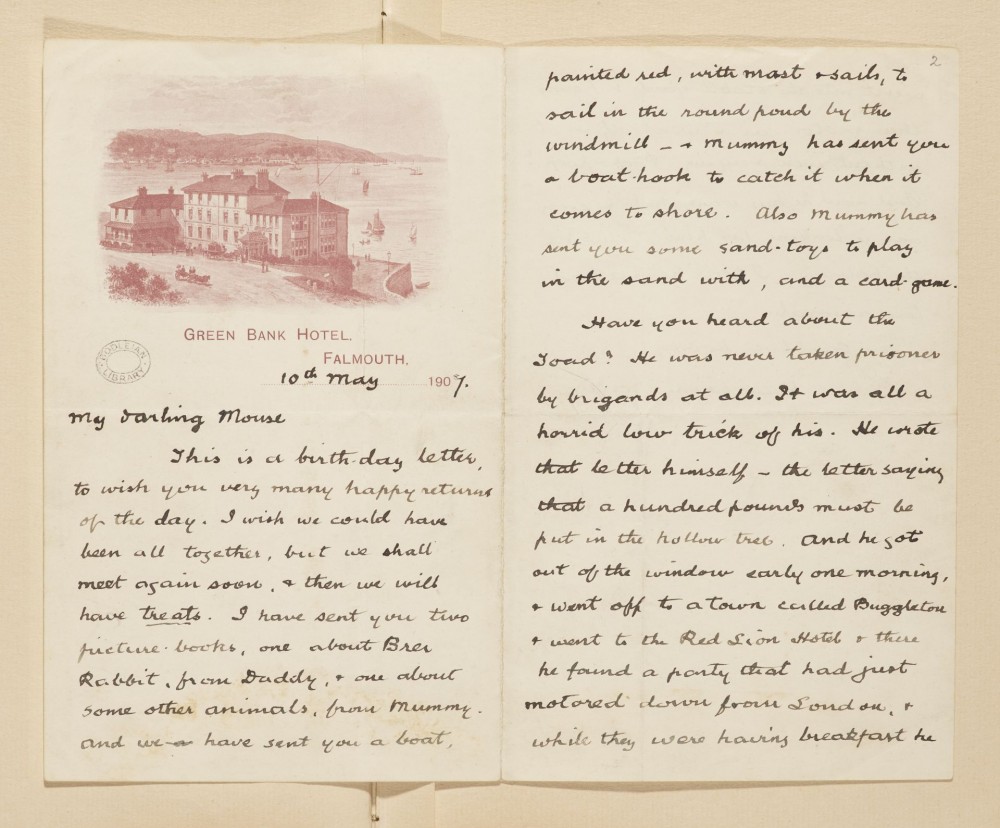 GREEN BANK HOTEL,
FALMOUTH.
10th May 1907.
BODLEIAN
LIBRARY
My Darling Mouse
This is a birth-day letter,
to wish you very many happy returns
of the day. I wish we could have
been all together, but we shall
meet again soon, & then we will
have treats. I have sent you two
picture-books, one about Brer
Rabbit, from Daddy, & one about
some other animals, from Mummy.
And we have sent you a boat,
2
painted red, with mast & sails, to
sail in the round pond by the
windmill - & Mummy has sent you
a boat-hook to catch it when it
comes to shore. Also Mummy has
sent you some sand-toys to play
in the sand with, and a card-game.
Have you heard about the
Toad? He was never taken prisoner
by brigands at all. It was all a
horrid low trick of his. He wrote
that letter himself - the letter saying
that a hundred pounds must be
put in the hollow tree. And he got
out of the window early one morning,
& went off to a town called Buggleton
& went to the Red Lion Hotel & there
he found a party that had just
motored down from London, &
while they were having breakfast he